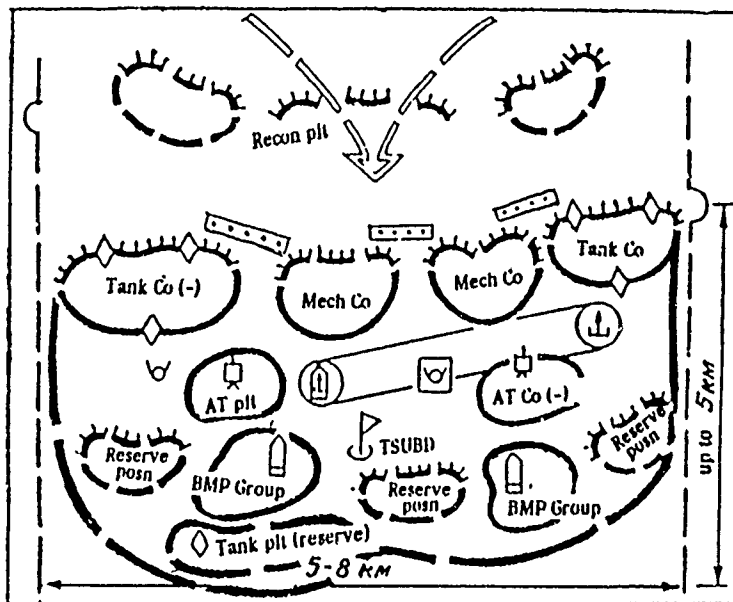 Recon plt
Tank Co (-)
Mech Co
Mech Co
Tank Co
AT plt
AT Co (-)
up to 5 км
Reserve
posn
BMP Group
TSUBD
Reserve
posn
BMP Group
Reserve
posn
Tank plt (reserve)
5-8 км